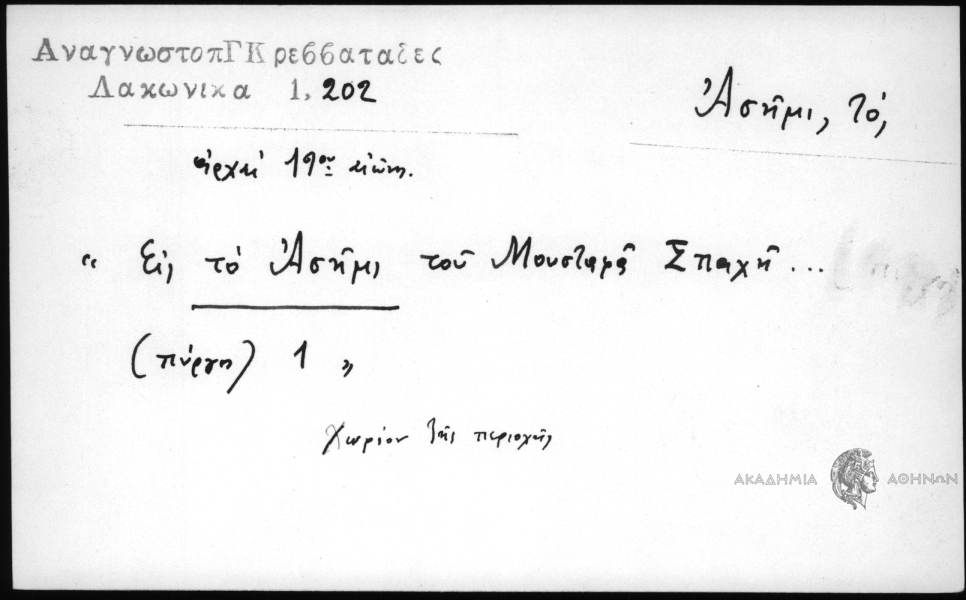 ΑναγνωστοπΓΚρεββαταδες
Λακωνικα 1, 202
Ἀσῆμι, τό,
ἀρχαὶ 19ου αἰῶνος.
" Εἰς τὸ Ἀσῆμι τοῦ Μουσταφᾶ Σπαχῆ...
(πύργοι) 1 "
χωρίον τῆς περιοχῆς
ΑΚΑΔΗΜΙΑ ΑΘΗΝΩΝ